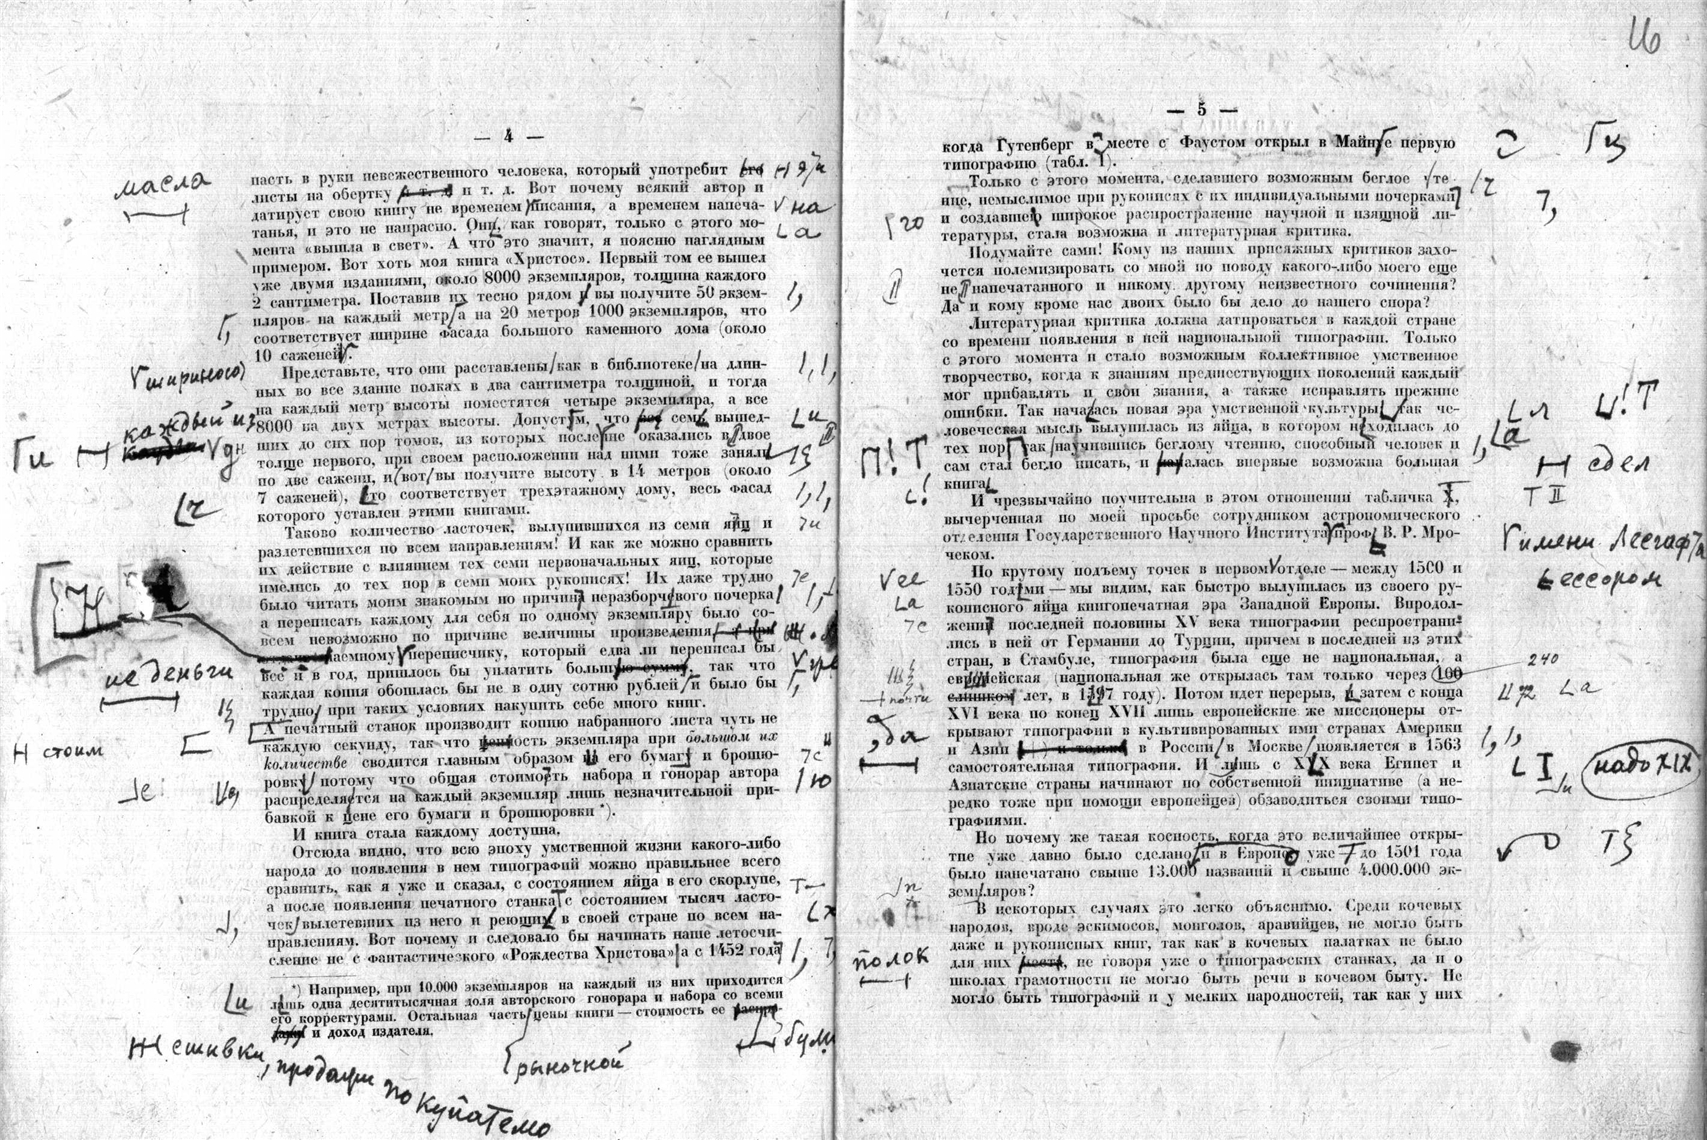 — 4 —
пасть в руки невежественного человека, который употребит его
листы на обертку и т. д. и т. д. Вот почему всякий автор и
датирует свою книгу не временем писания, а временем напеча-
танья, и это не напрасно. Они, как говорят, только с этого мо-
мента «вышла в свет». А что это значит, я поясню наглядным
примером. Вот хоть моя книга «Христос». Первый том ее вышел
уже двумя изданиями, около 8000 экземпляров, толщина каждого
2 сантиметра. Поставив их тесно рядом и вы получите 50 экзем-
пляров на каждый метр/а на 20 метров 1000 экземпляров, что
соответствует ширине фасада большого каменного дома (около
10 саженей).
Представьте, что они расставлены/как в библиотеке/на длин-
ных во все здание полках в два сантиметра толщиной, и тогда
на каждый метр высоты поместятся четыре экземпляра, а все
8000 на двух метрах высоты. Допустим, что семь вышед-
ших до сих пор томов, из которых последние оказались вдвое
толще первого, при своем расположении над ними тоже заняли
по две сажени, и/вот/вы получите высоту в 14 метров (около
7 саженей), то соответствует трехэтажному дому, весь фасад
которого уставлен этими книгами.
Таково количество ласточек, вылупившихся из семи яиц и
разлетевшихся по всем направлениям! И как же можно сравнить
их действие с влиянием тех семи первоначальных яиц, которые
имелись до тех пор в семи моих рукописях! Их даже трудно
было читать моим знакомым по причине неразборчивого почерка
а переписать каждому для себя по одному экземпляру было со-
всем невозможно по причине величины произведения
наемному переписчику, который едва ли переписал бы
все и в год, пришлось бы уплатить большую сумму, так что
каждая копия обошлась бы не в одну сотню рублей/и было бы
трудно/ при таких условиях накупить себе много книг.
А печатный станок производит копию набранного листа чуть не
каждую секунду, так что ценность экземпляра при большом их
количестве сводится главным образом на его бумагу и брошю-
ровку/ потому что общая стоимость набора и гонорар автора
распределяется на каждый экземпляр лишь незначительной при-
бавкой к цене его бумаги и брошюровки *).
И книга стала каждому доступна.
Отсюда видно, что всю эпоху умственной жизни какого-либо
народа до появления в нем типографий можно правильнее всего
сравнить, как я уже и сказал, с состоянием яйца в его скорлупе,
а после появления печатного станка с состоянием тысяч ласто-
чек/вылетевших из него и реющих в своей стране по всем на-
правлениям. Вот почему и следовало бы начинать наше летосчи-
сление не с фантастического «Рождества Христова»/а с 1452 года
*) Например, при 10.000 экземпляров на каждый из них приходится
лишь одна десятитысячная доля авторского гонорара и набора со всеми
его корректурами. Остальная часть цены книги — стоимость ее
и доход издателя.
масла
шириною
каждый из
не деньги
Н стоим
сшивки, продащи покупателю
рыночной
бум
16
— 5 —
когда Гутенберг вместе с Фаустом открыл в Майнце первую
типографию (табл. I).
Только с этого момента, сделавшего возможным беглое чте
ние, немыслимое при рукописях с их индивидуальными почерками
и создавшего широкое распространение научной и изящной ли-
тературы, стала возможна и литературная критика.
Подумайте сами! Кому из наших присяжных критиков захо-
чется полемизировать со мной по поводу какого-либо моего еще
не напечатанного и никому другому неизвестного сочинения?
Да и кому кроме нас двоих было бы дело до нашего спора?
Литературная критика должна датироваться в каждой стране
со времени появления в ней национальной типографии. Только
с этого момента и стало возможным коллективное умственное
творчество, когда к знаниям предшествующих поколений каждый
мог прибавлять и свои знания, а также исправлять прежние
ошибки. Так началась новая эра умственной культуры так че-
ловеческая мысль вылупилась из яйца, в котором находилась до
тех пор так/научившись беглому чтению, способный человек и
сам стал бегло писать, и началась впервые возможна большая
книга
И чрезвычайно поучительна в этом отношении табличка I,
вычерченная по моей просьбе сотрудником астрономического
отделения Государственного Научного Института проф. В. Р. Мро-
чеком.
По крутому подъему точек в первом отделе — между 1500 и
1550 годами — мы видим, как быстро вылупилась из своего ру-
кописного яйца книгопечатная эра Западной Европы. Впродол-
жении последней половины XV века типографии респространи-
лись в ней от Германии до Турции, причем в последней из этих
стран, в Стамбуле, типография была еще не национальная, а
еврейская (национальная же открылась там только через 100
слишком лет, в 1727 году). Потом идет перерыв, и затем с конца
XVI века по конец XVII лишь европейские же миссионеры от-
крывают типографии в культивированных ими странах Америки
и Азии в России/в Москве/появляется в 1563
самостоятельная типография. И лишь с XIX века Египет и
Азиатские страны начинают по собственной инициативе (а не-
редко тоже при помощи европейцев) обзаводиться своими типо-
графиями.
Но почему же такая косность, когда это величайшее откры-
тие уже давно было сделано и в Европе уже до 1501 года
было напечатано свыше 13.000 названий и свыше 4.000.000 эк-
земпляров?
В некоторых случаях это легко объяснимо. Среди кочевых
народов, вроде эскимосов, монголов, аравийцев, не могло быть
даже и рукописных книг, так как в кочевых палатках не было
для них мест, не говоря уже о типографских станках, да и о
школах грамотности не могло быть речи в кочевом быту. Не
могло быть типографий и у мелких народностей, так как у них
сдел
имени Лесгафта
ессором
240
почти
надо XIX
полок